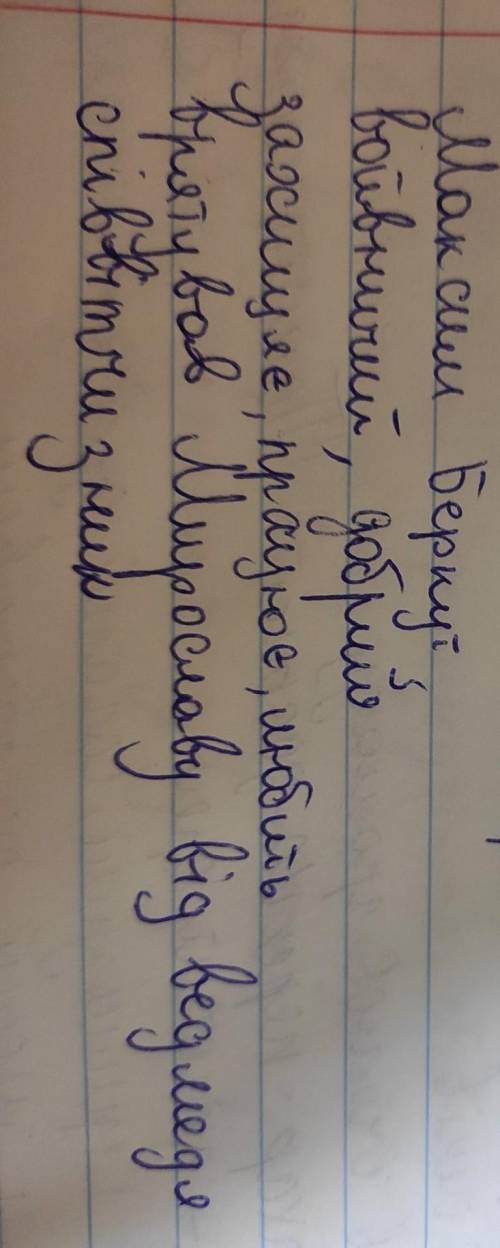 Максим Беркут
войвничий, добрий
захищує, працює, любить
врятував Мирославу від ведмедя
співвітчизник